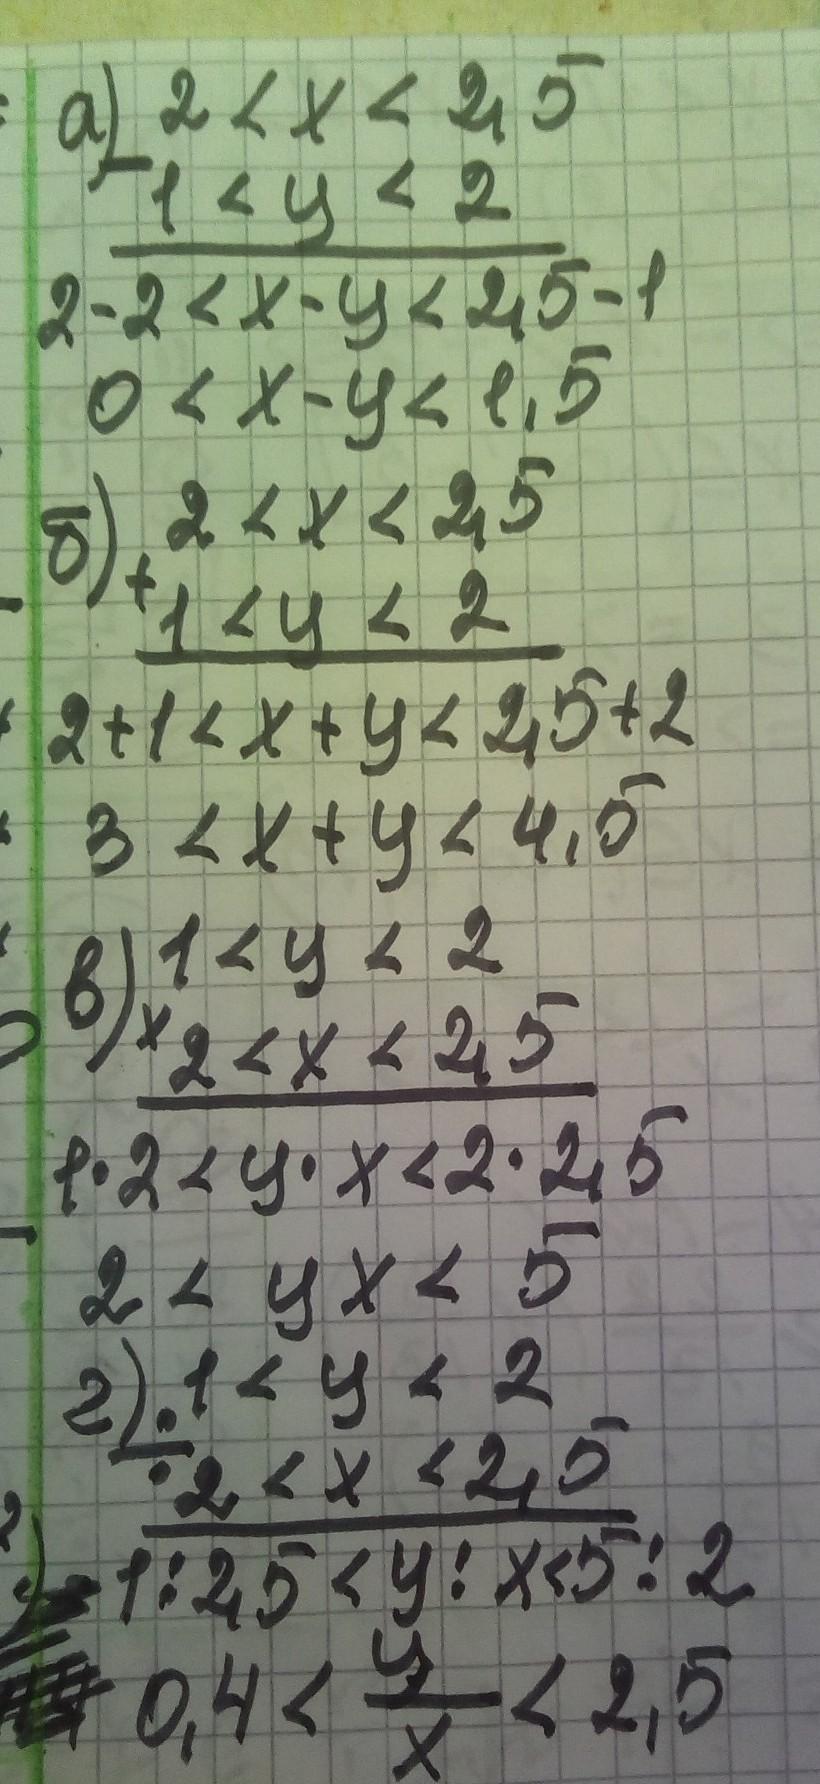 а) 2 < x < 2,5
−
1 < y < 2
2-2 < x-y < 2,5-1
0 < x-y < 1,5
б) 2 < x < 2,5
+
1 < y < 2
2+1 < x+y < 2,5+2
3 < x+y < 4,5
в) 1 < y < 2
×
2 < x < 2,5
1·2 < y·x < 2·2,5
2 < yx < 5
г) 1 < y < 2
÷
2 < x < 2,5
1:2,5 < y:x < 5:2
0,4 < y/x < 2,5